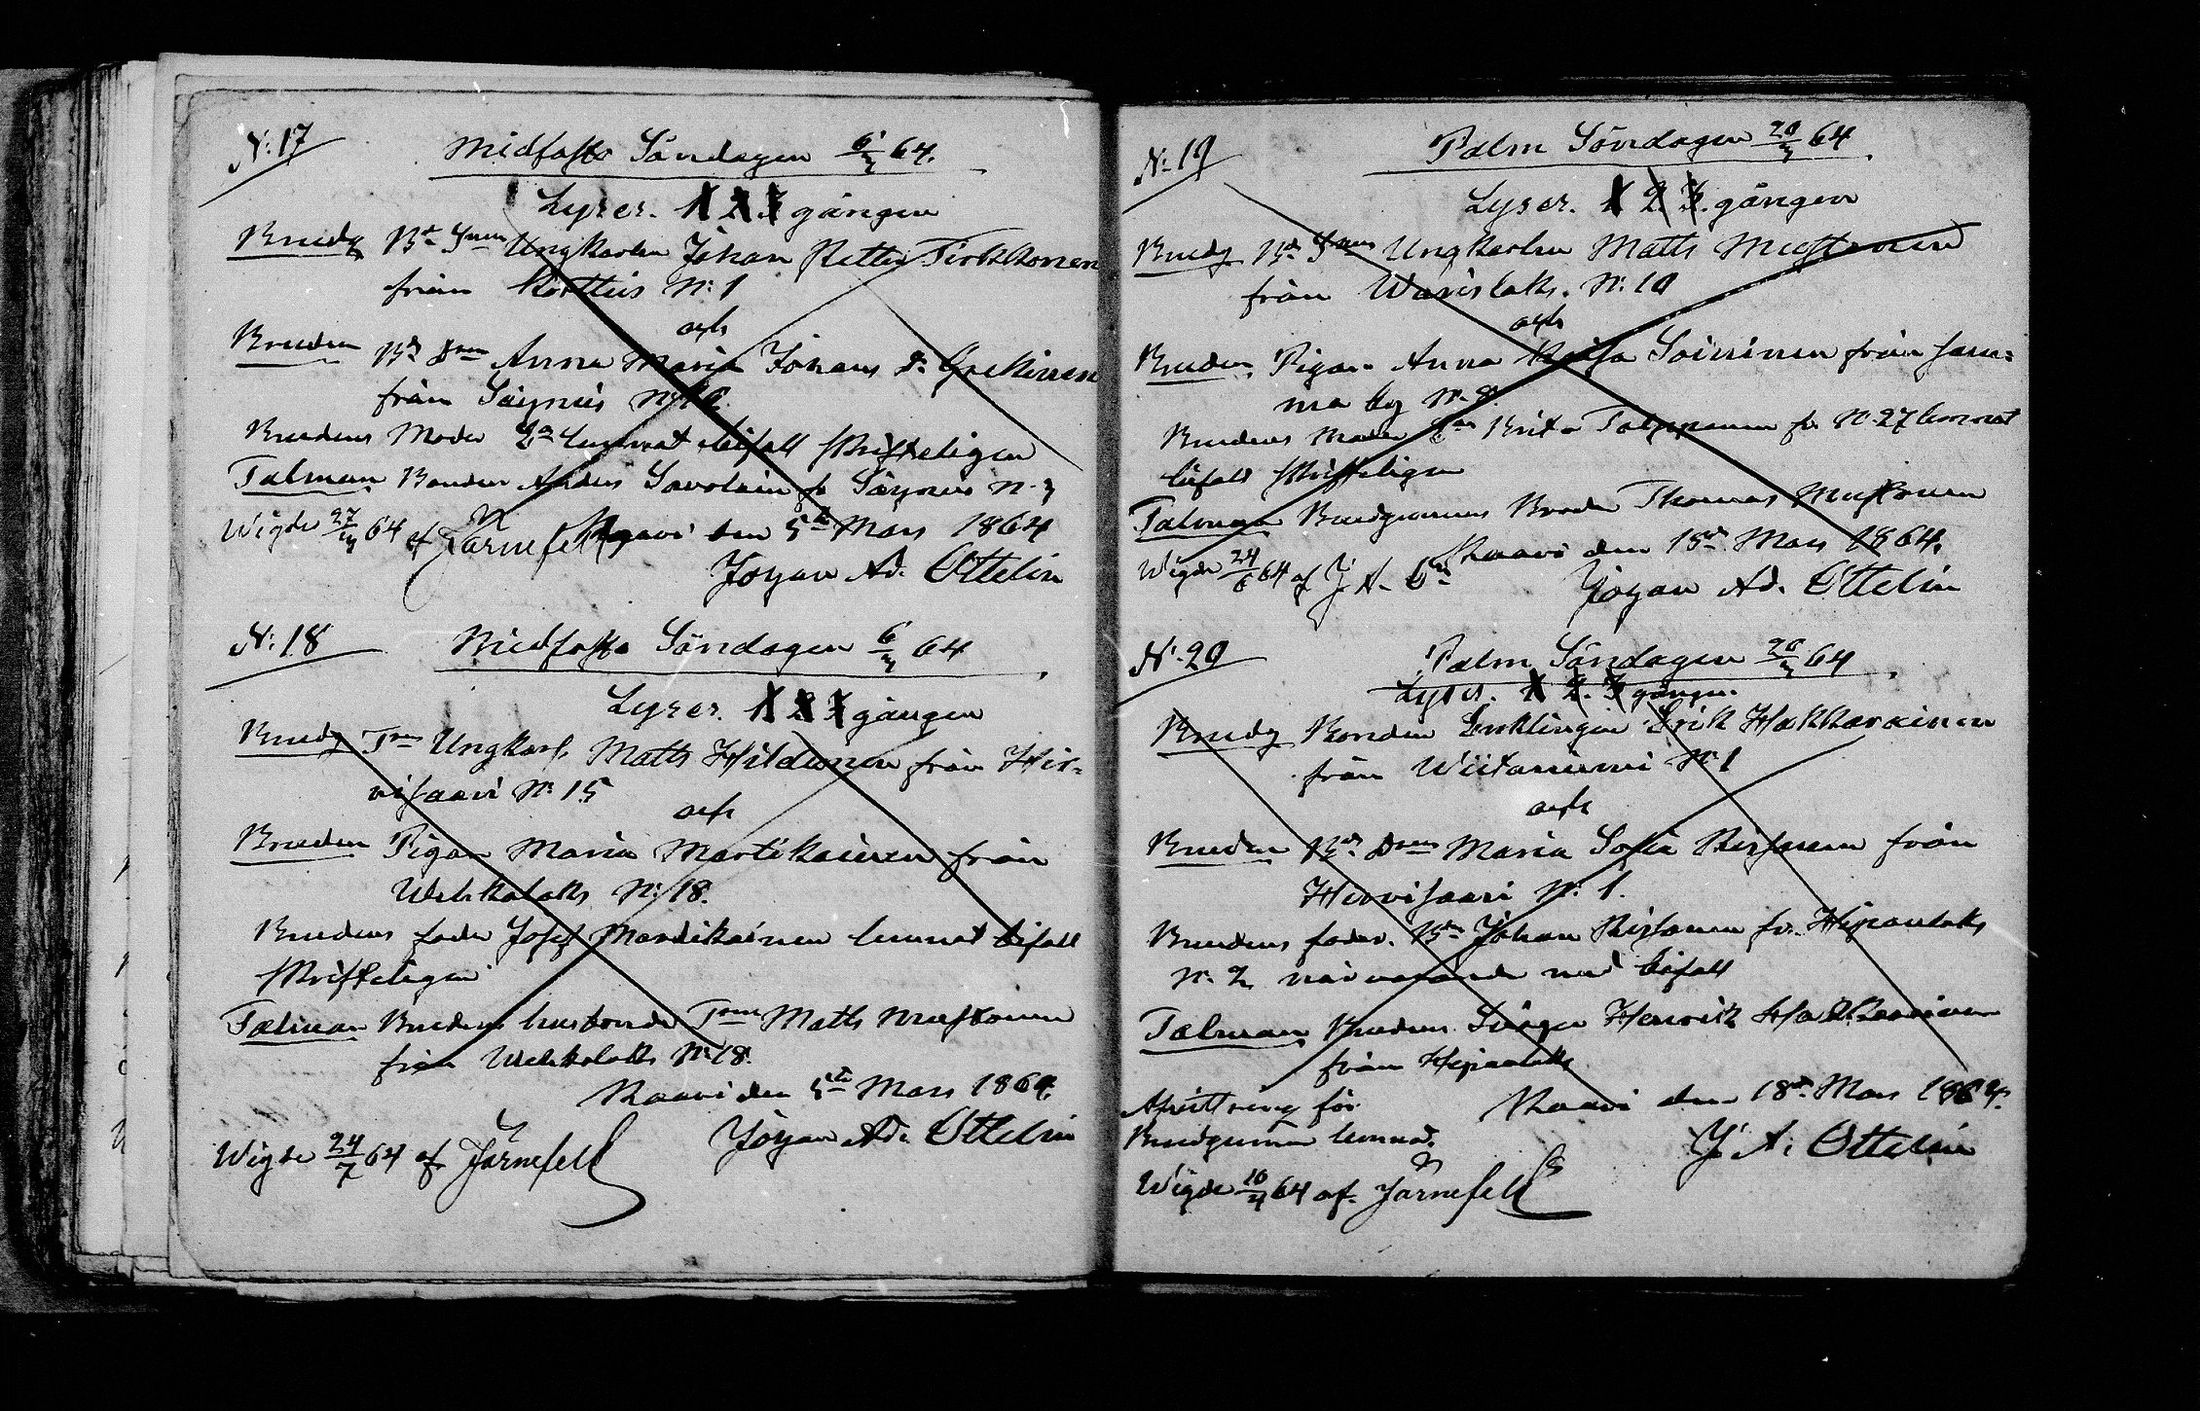 N:17
Midfasto Söndagen 6/3 64.
Lyses. 1 2 3 gången
Brudg Bd Snen Ungkarlen Johan Petter Tirkkonen
från Korttus N:1
och
Bruden Bd Dren Anna Maria Johans D. Grekinen
från Säynus N:
Brudens Moder Lemnat bifall skrifteligen
Talman Bonden Anders Savolain fr Säynus N. 3
Wigde 27/3 64 af Järnefelt
Kaavi den 5te Mars 1864
Johan Ad. Ottelin
N:18
Midfasto Söndagen 6/3 64
Lyses. 1 2 3 gången
Brudg Tnn Ungkarl. Matts Hildunen från Hir-
visaari N:15
och
Bruden Pigan Maria Martikainen från
Wehkalaks N:18.
Brudens fader Josef Martikainen lemnat bifall
skrifteligen
Talman Brudens husbonde Matts Mustonen
från Wehkalaks N:18.
Kaavi den 5te Mars 1864.
Johan Ad. Ottelin
Wigde 24/7 64 af Järnefelt
N:19
Palm Söndagen 20/3 64
Lyses. 1 2. 3. gången
Brudg Bd Snen Ungkarlen Matts Mustonen
från Warislaks. N:10
och
Bruden Pigan Anna Kaisa Soininen från
by N. 8.
Brudens Moder Brita Tolppanen fr. N:27 lemnat
bifall skrifteligen
Talman Brudgummens Broder Thomas Mustonen
Kaavi den 18de Mars 1864.
Wigde 24/6 64 af J. A. On
Johan Ad. Ottelin
N:20
Palm Söndagen 20/3 64
Lyses. 1 2. 3 gången.
Brudg Bonden Enklingen Erik Hakkarainen
från Wiitaniemi N:1
och
Bruden Bds Dren Maria Sofia Rissanen från
Hirvisaari N: 1.
Brudens fader. Bdn Johan Rissanen fr. Hijranlaks
N. 2 närvarande med bifall
Talman Brudens Henrik Hakkarainen
från
Afvittring för
Brudgummen lemnad.
Kaavi den 18de Mars 1864.
J. A. Ottelin
Wigde 10/4 64 af. Järnefelt